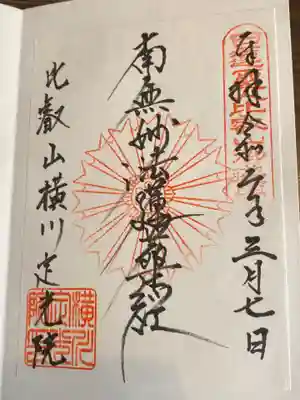 奉拝 令和二年三月七日
南無妙法蓮華経
比叡山横川 定光院